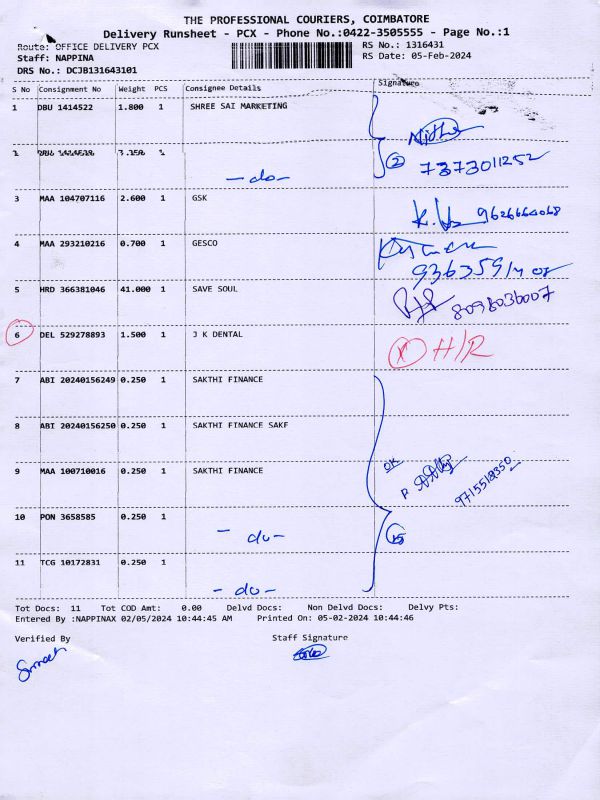 THE PROFESSIONAL COURIERS, COIMBATORE
Delivery Runsheet - PCX - Phone No.:0422-3505555 - Page No.:1
Route: OFFICE DELIVERY PCX
RS No.: 1316431
Staff: NAPPINA
RS Date: 05-Feb-2024
DRS No.: DCJB131643101
S No Consignment No Weight PCS Consignee Details Signature
1 DBU 1414522 1.800 1 SHREE SAI MARKETING
1
- do - 2 7373011252
3 MAA 104707116 2.600 1 GSK
9626664068
4 MAA 293210216 0.700 1 GESCO
5 HRD 366381046 41.000 1 SAVE SOUL
8098036007
6 DEL 529278893 1.500 1 J K DENTAL
X H/R
7 ABI 20240156249 0.250 1 SAKTHI FINANCE
8 ABI 20240156250 0.250 1 SAKTHI FINANCE SAKF
9 MAA 100710016 0.250 1 SAKTHI FINANCE
OK
10 PON 3658585 0.250 1
- do -
11 TCG 10172831 0.250 1
- do -
Tot Docs: 11 Tot COD Amt: 0.00 Delvd Docs: Non Delvd Docs: Delvy Pts:
Entered By :NAPPINAX 02/05/2024 10:44:45 AM Printed On: 05-02-2024 10:44:46
Verified By Staff Signature